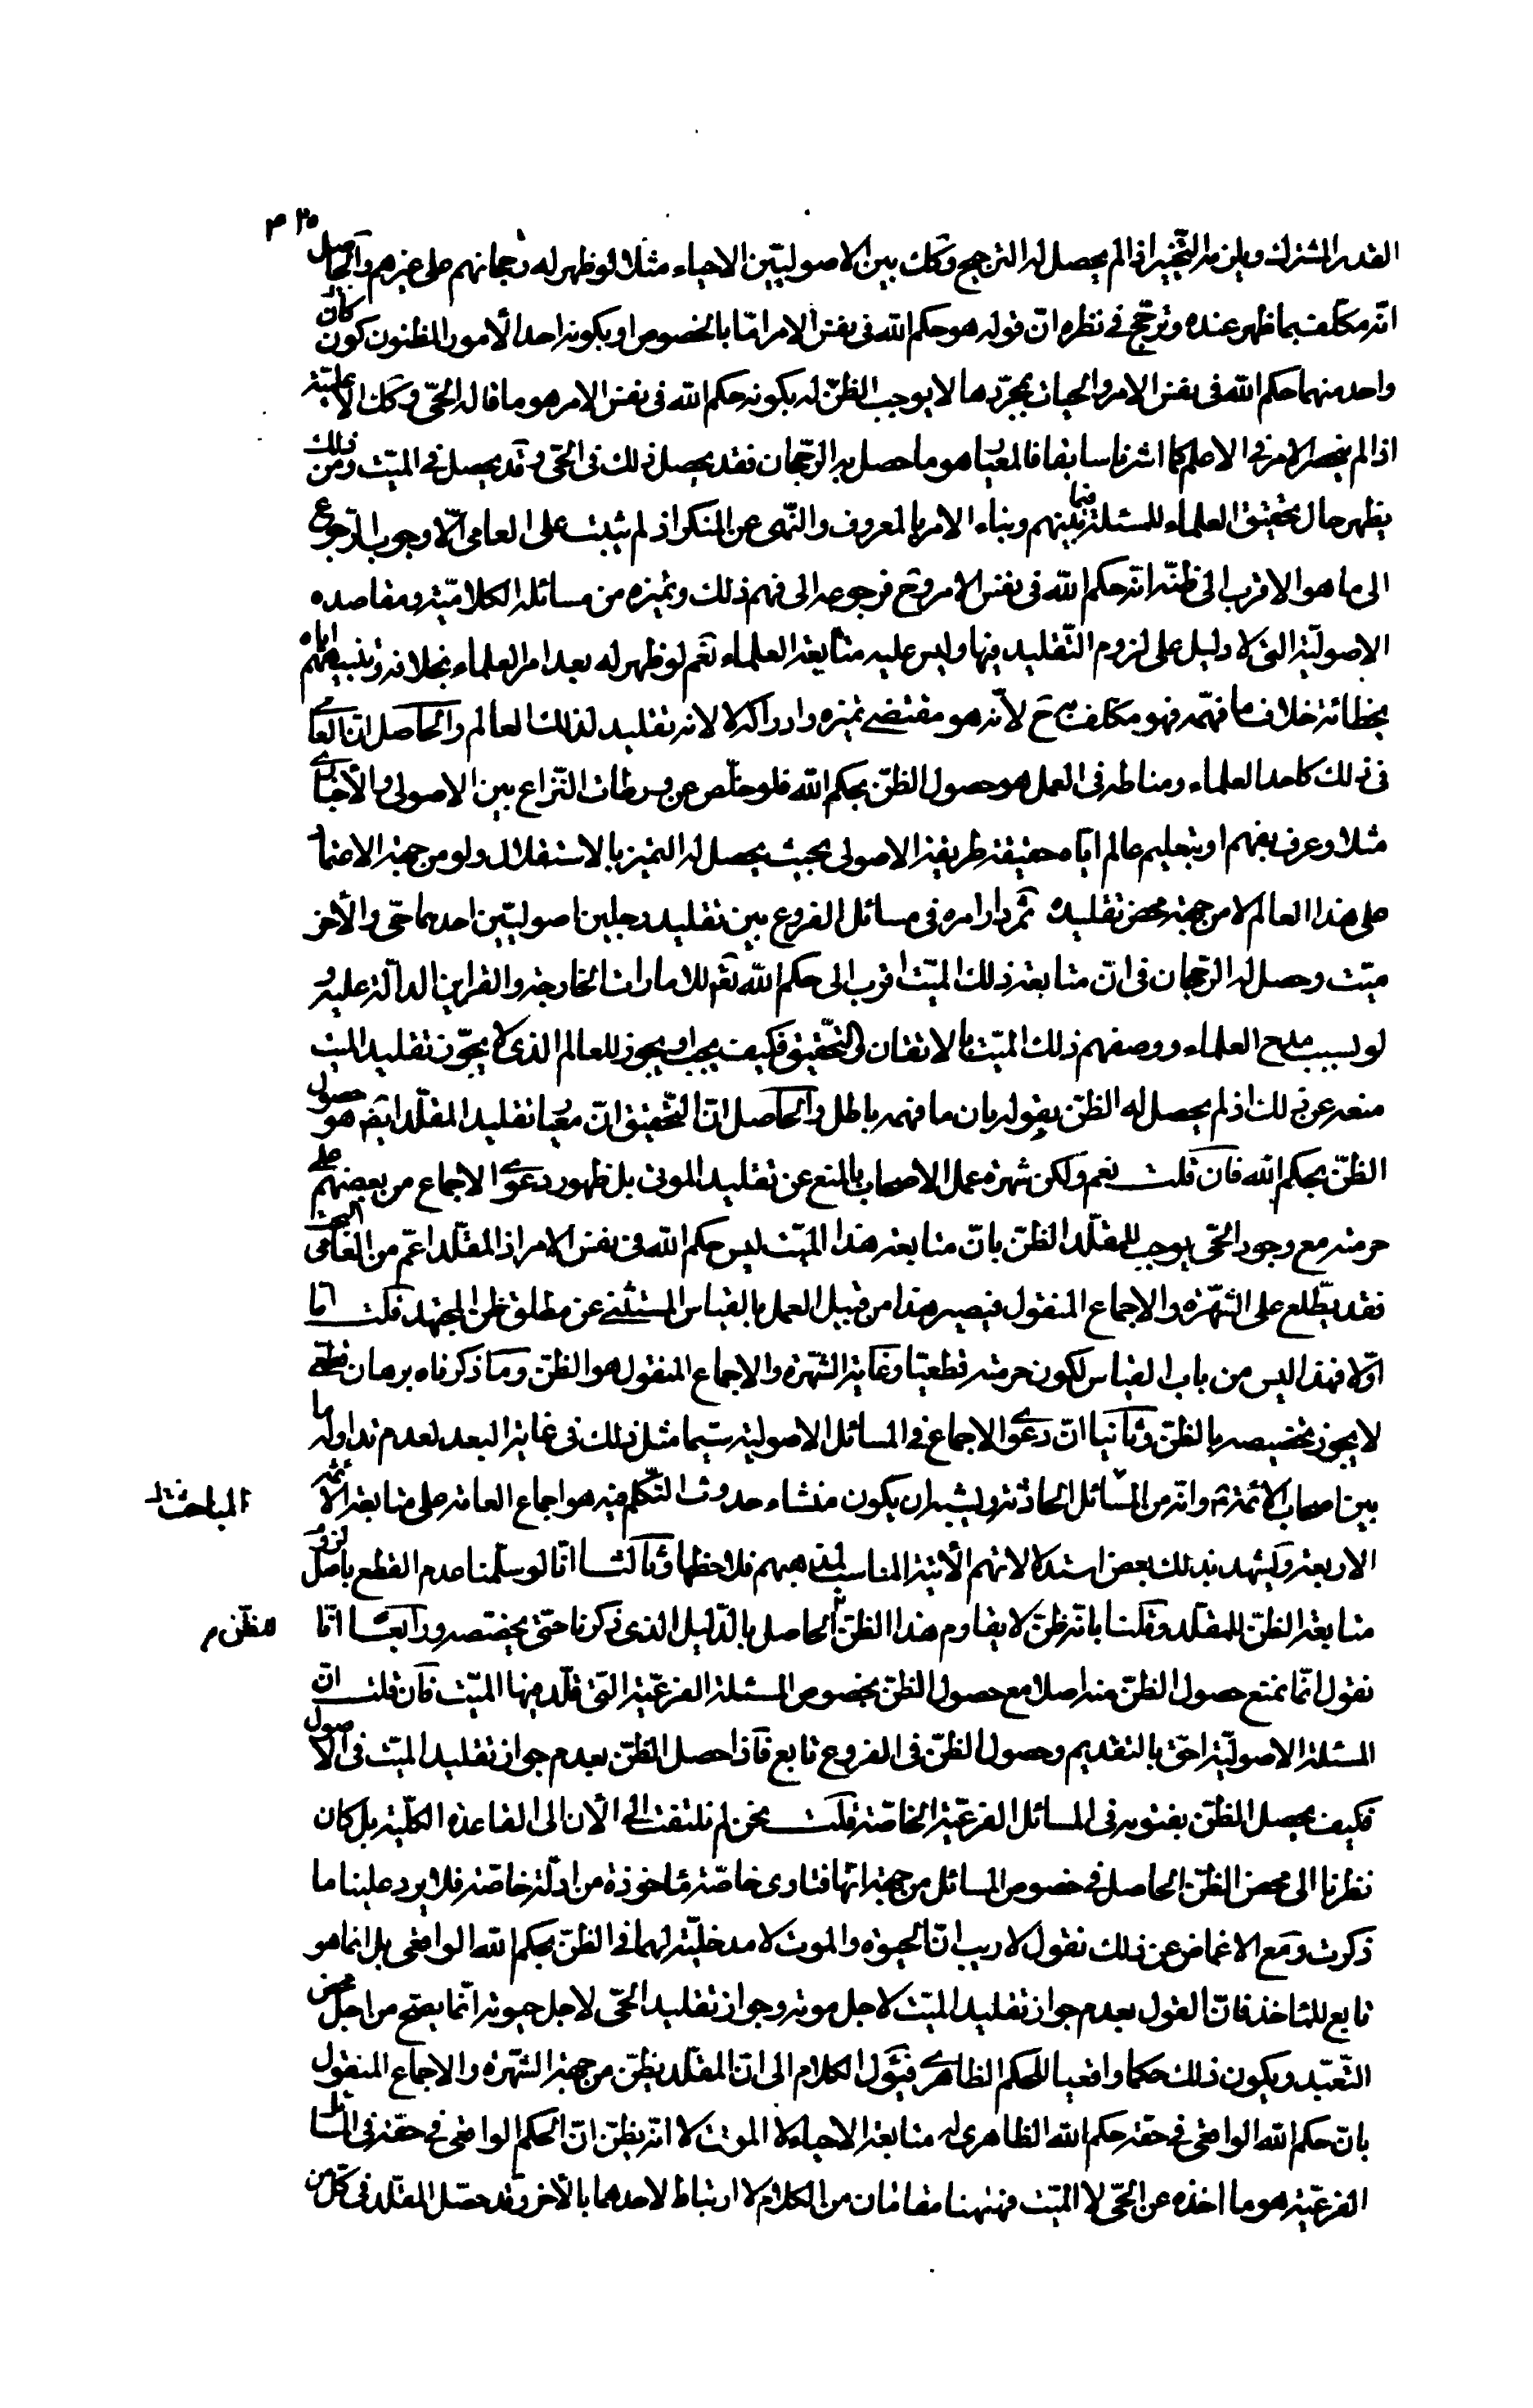 القدر المشترك ويلزمه التخيير اذا لم يحصل له الترجيح وكك بين الاصوليّين الاحياء مثلا لو ظهر له رجحانهم على غيرهم والحاصل
انّه مكلّف بما ظهر عنده وترجّح في نظره انّ قوله هو حكم الله في نفس الامر امّا بالخصوص او بكونه احد الأمور المظنون كون كل
واحد منهما حكم الله في نفس الامر والحيات بمجرّدها لا يوجب الظنّ له بكونه حكم الله في نفس الامر هو ما قاله الحيّ وكك الاعلميّة
اذا لم ينحصر الامر في الاعلم كما اشرنا سابقا فالمعيار هو ما حصل به الرّجحان فقد يحصل ذلك في الحيّ وقد يحصل في الميّت ومن ذلك
يظهر حال تحقيق العلماء للمسئلة فيما بينهم وبناء الامر بالمعروف والنّهى عن المنكر اذ لم يثبت على العامى الّا وجوب الرّجوع
الى ما هو الاقرب الى ظنّه انّه حكم الله في نفس الامر وح فرجوعه الى فهم ذلك وتميزه من مسائله الكلاميّة ومقاصده
الاصوليّة التى لا دليل على لزوم التّقليد فيها وليس عليه متابعة العلماء نعم لو ظهر له بعد امر العلماء بخلافه وتنبيههم ايّاه
بخطائه خلاف ما فهمه فهو مكلف به ح لأنّه هو مقتضى تميزه وادراكه لا لانه تقليد لذلك العالم والحاصل انّ العامى
في ذلك كاحد العلماء ومناطه في العمل هو حصول الظنّ بحكم الله فلو خلّص عن ورطات النّزاع بين الاصولى والأخبارى
مثلا وعرف بفهمه او بتعليم عالم ايّاه حقيقة طريقة الاصولى بحيث يحصل له التميز بالاستقلال ولو من جهة الاعتماد
على هذا العالم لا من جهة محض تقليده ثم دار امره في مسائل الفروع بين تقليد رجلين اصوليّين احدهما حىّ والأخر
ميّت وحصل له الرّجحان في انّ متابعة ذلك الميّت اقرب الى حكم الله تع للامارات الخارجة والقراين الدالّة عليه
لو بسبب مدح العلماء ووصفهم ذلك الميّت بالاتقان والتّحقيق فكيف يجب او يجوز للعالم الذى لا يجوّز تقليد الميّت
منعه عن ذلك اذ لم يحصل له الظنّ بقوله بان ما فهمه باطل والحاصل انّ التّحقيق انّ معيار تقليد المقلّد ايضا هو حصول
الظنّ بحكم الله فان قلت نعم ولكن شهرة عمل الاصحاب بالمنع عن تقليد الموتى بل ظهور دعوى الاجماع من بعضهم على
حرمته مع وجود الحّى يوجب للمقلّد الظنّ بانّ متابعة هذا الميّت ليس حكم الله في نفس الامر اذ المقلّد اعمّ من العامى البحت
فقد يطّلع على الشّهرة والاجماع المنقول فيصير هذا من قبيل العمل بالقياس المستثنى عن مطلق ظن المجتهد قلت امّا
اوّلا فهذا ليس من باب القياس لكون حرمته قطعيّا وغاية الشّهرة والاجماع المنقول هو الظنّ وما ذكرناه برهان قطعىّ
لا يجوز تخصيصه بالظنّ وثانيا انّ دعوى الاجماع في المسائل الاصولية سيّما مثل ذلك في غاية البعد لعدم تداولها
بين اصحاب الائمّة ع وانّه من المسائل الحادثة ويشبه ان يكون منشاء حدوث التّكلم فيه هو اجماع العامة على متابعة الأئمّة
المباحثة
الاربعة ويشهد بذلك بعض استدلالاتهم الأتية المناسبة لمذهبهم فلاحظها وثالثا انّا لو سلّمنا عدم القطع باصل لزوم
متابعة الظنّ للمقلّد وقلنا بانّه ظنّ لا يقاوم هذا الظنّ الحاصل بالدّليل الذى ذكرنا حتّى يخصّصه ورابعا انّا
للظّن م
نقول انّا نمنع حصول الظنّ منه اصلا مع حصول الظنّ بخصوص المسئلة الفرعيّة التّى قلّد فيها الميّت فان قلت انّ
المسئلة الاصوليّة احقّ بالتقديم وحصول الظنّ في الفروع تابع فاذا حصل الظنّ بعدم جواز تقليد الميّت في الاصول
فكيف يحصل الظنّ بفتويه في المسائل الفرعيّة الخاصّة قلت نحن لم نلتفت الى الأن الى القاعدة الكلّية بل كان
نظرنا الى محض الظنّ الحاصل في خصوص المسائل من جهة انّها فتاوى خاصّة مأخوذة من ادلّة خاصّة فلا يرد علينا ما
ذكرت ومع الاغماض عن ذلك نقول لا ريب انّ الحيوة والموت لا مدخليّة لهما في الظنّ بحكم الله الواقعى بل انما هو
تابع للمأخذ فانّ القول بعدم جواز تقليد الميّت لاجل موته وجواز تقليد الحّى لاجل حيوته انّما يصّح من اجل محض
التّعبّد ويكون ذلك حكما واقعيا للحكم الظاهرى فيئول الكلام الى انّ المقلّد يظنّ من جهة الشّهرة والاجماع المنقول
بانّ حكم الله الواقعى في حقّه حكم الله الظاهرى له متابعة الاحياء لا الموت لا انّه يظنّ انّ الحكم الواقعى في حقّه في المسائل
الفرعيّة هو ما اخذه عن الحّى لا الميّت فهيهنا مقامان من الكلام لا ارتباط لاحدهما بالأخر وقد حصّل المقلّد في كلّ من